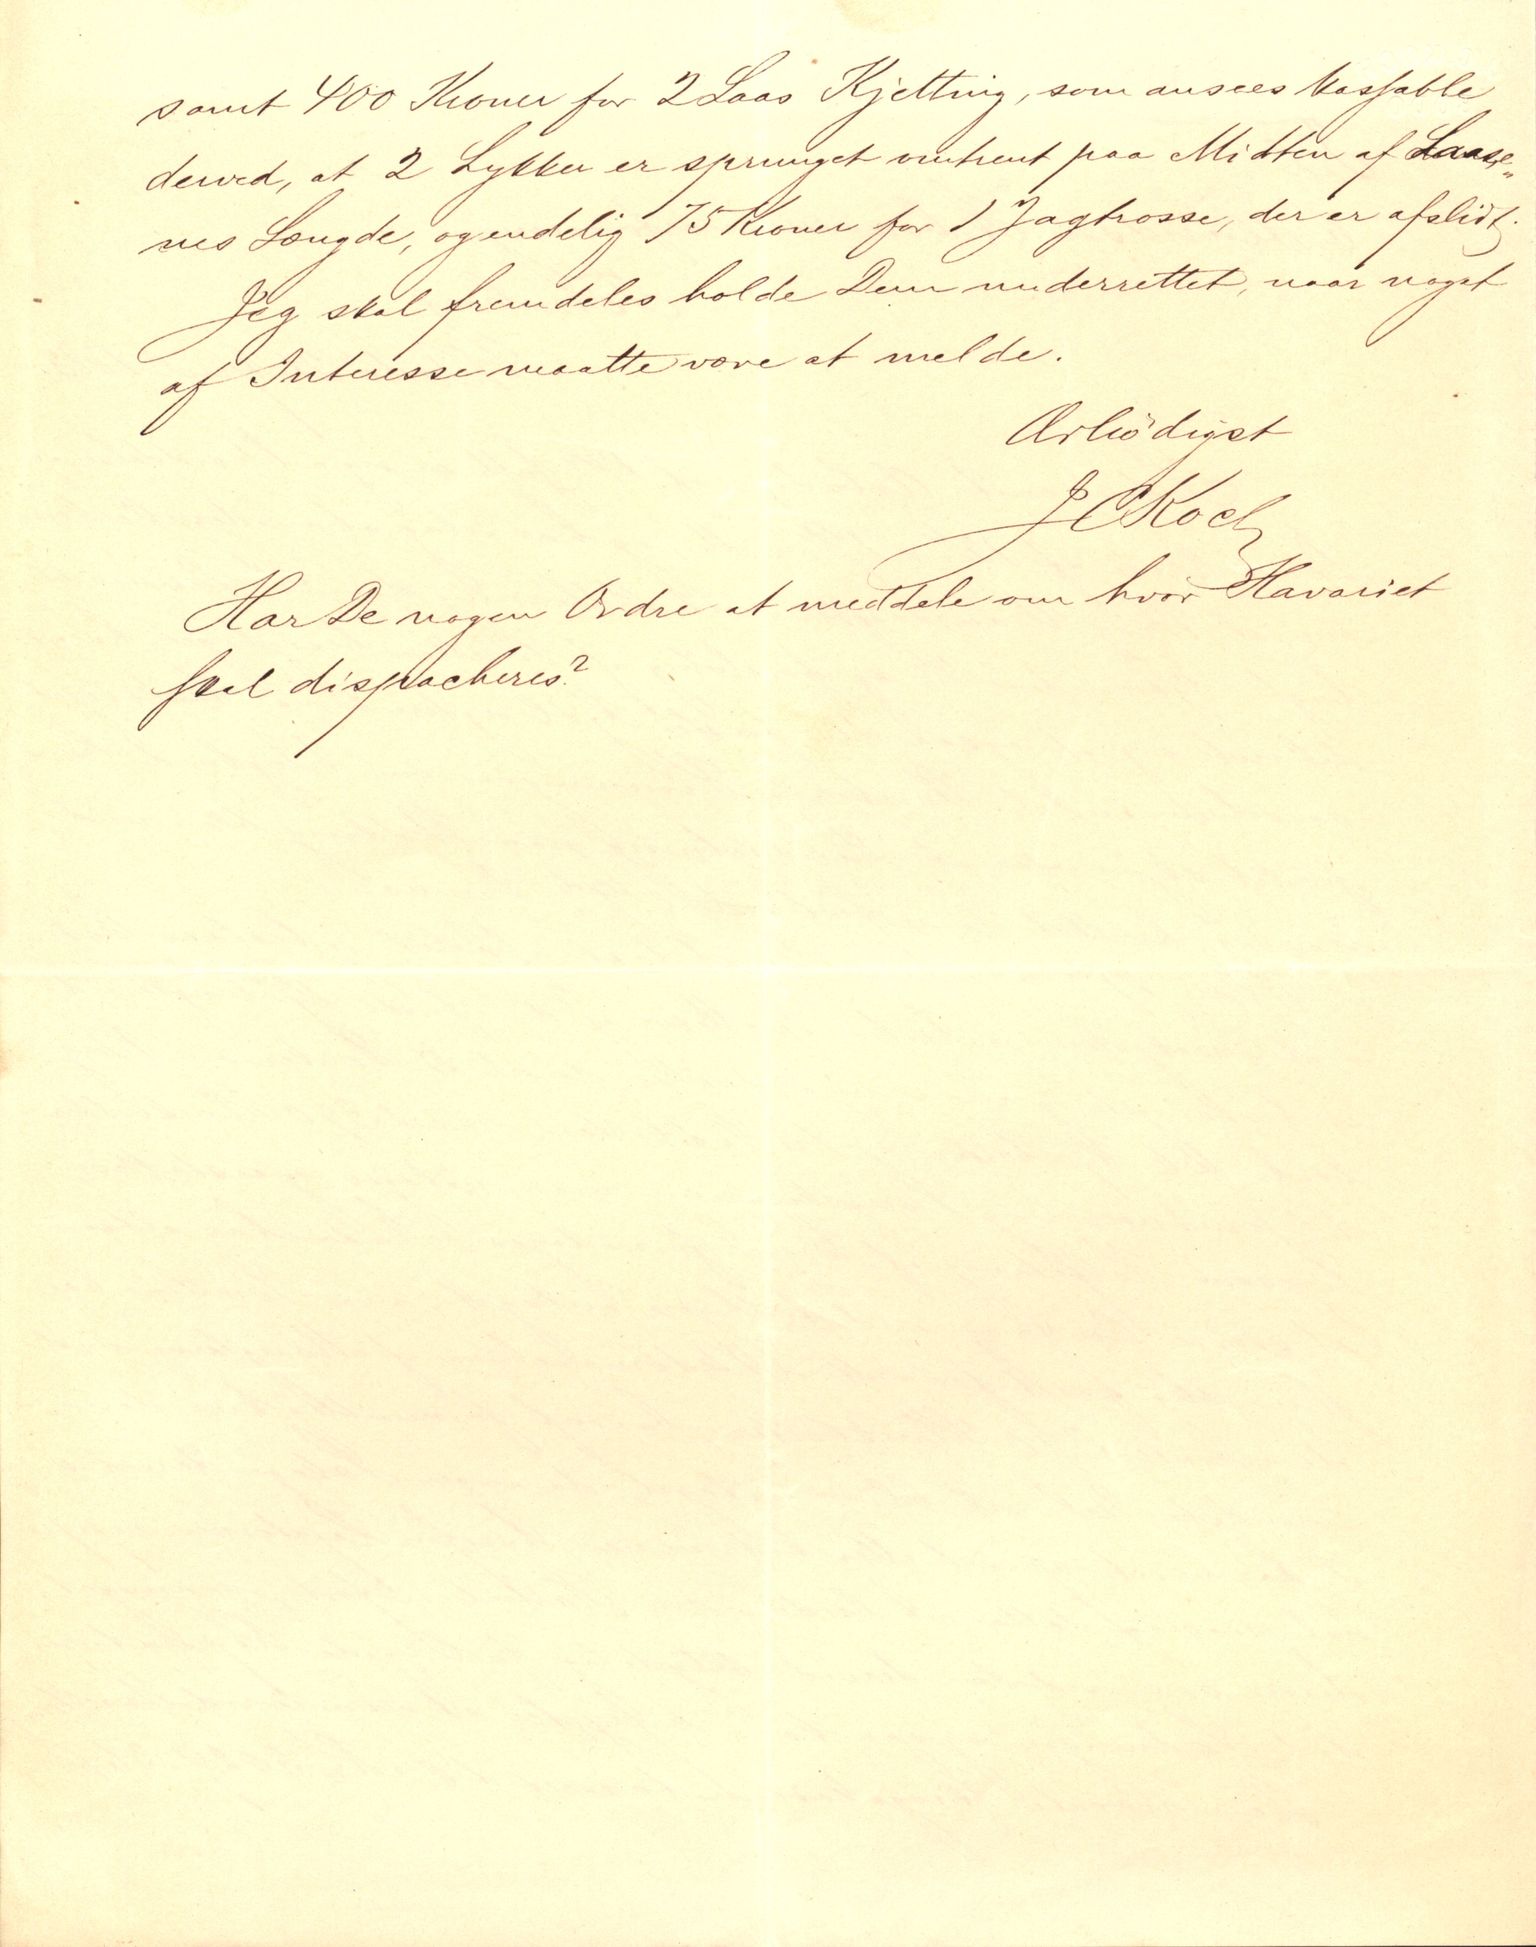 samt 400 Kroner for 2 Laas Kjetting, som ansees kassable
derved, at 2 Lykker er sprunget omtrent paa Midten af Laase„
nes Længde, og endelig 75 Kroner for 1 Jagtrosse, der er afslidt.
Jeg skal fremdeles holde Dem underrettet, naar noget
af Interesse maatte være at melde.
Ærbödigst
J C Koch
Har De nogen Ordre at meddele om hvor Havariet
skal dispacheres?